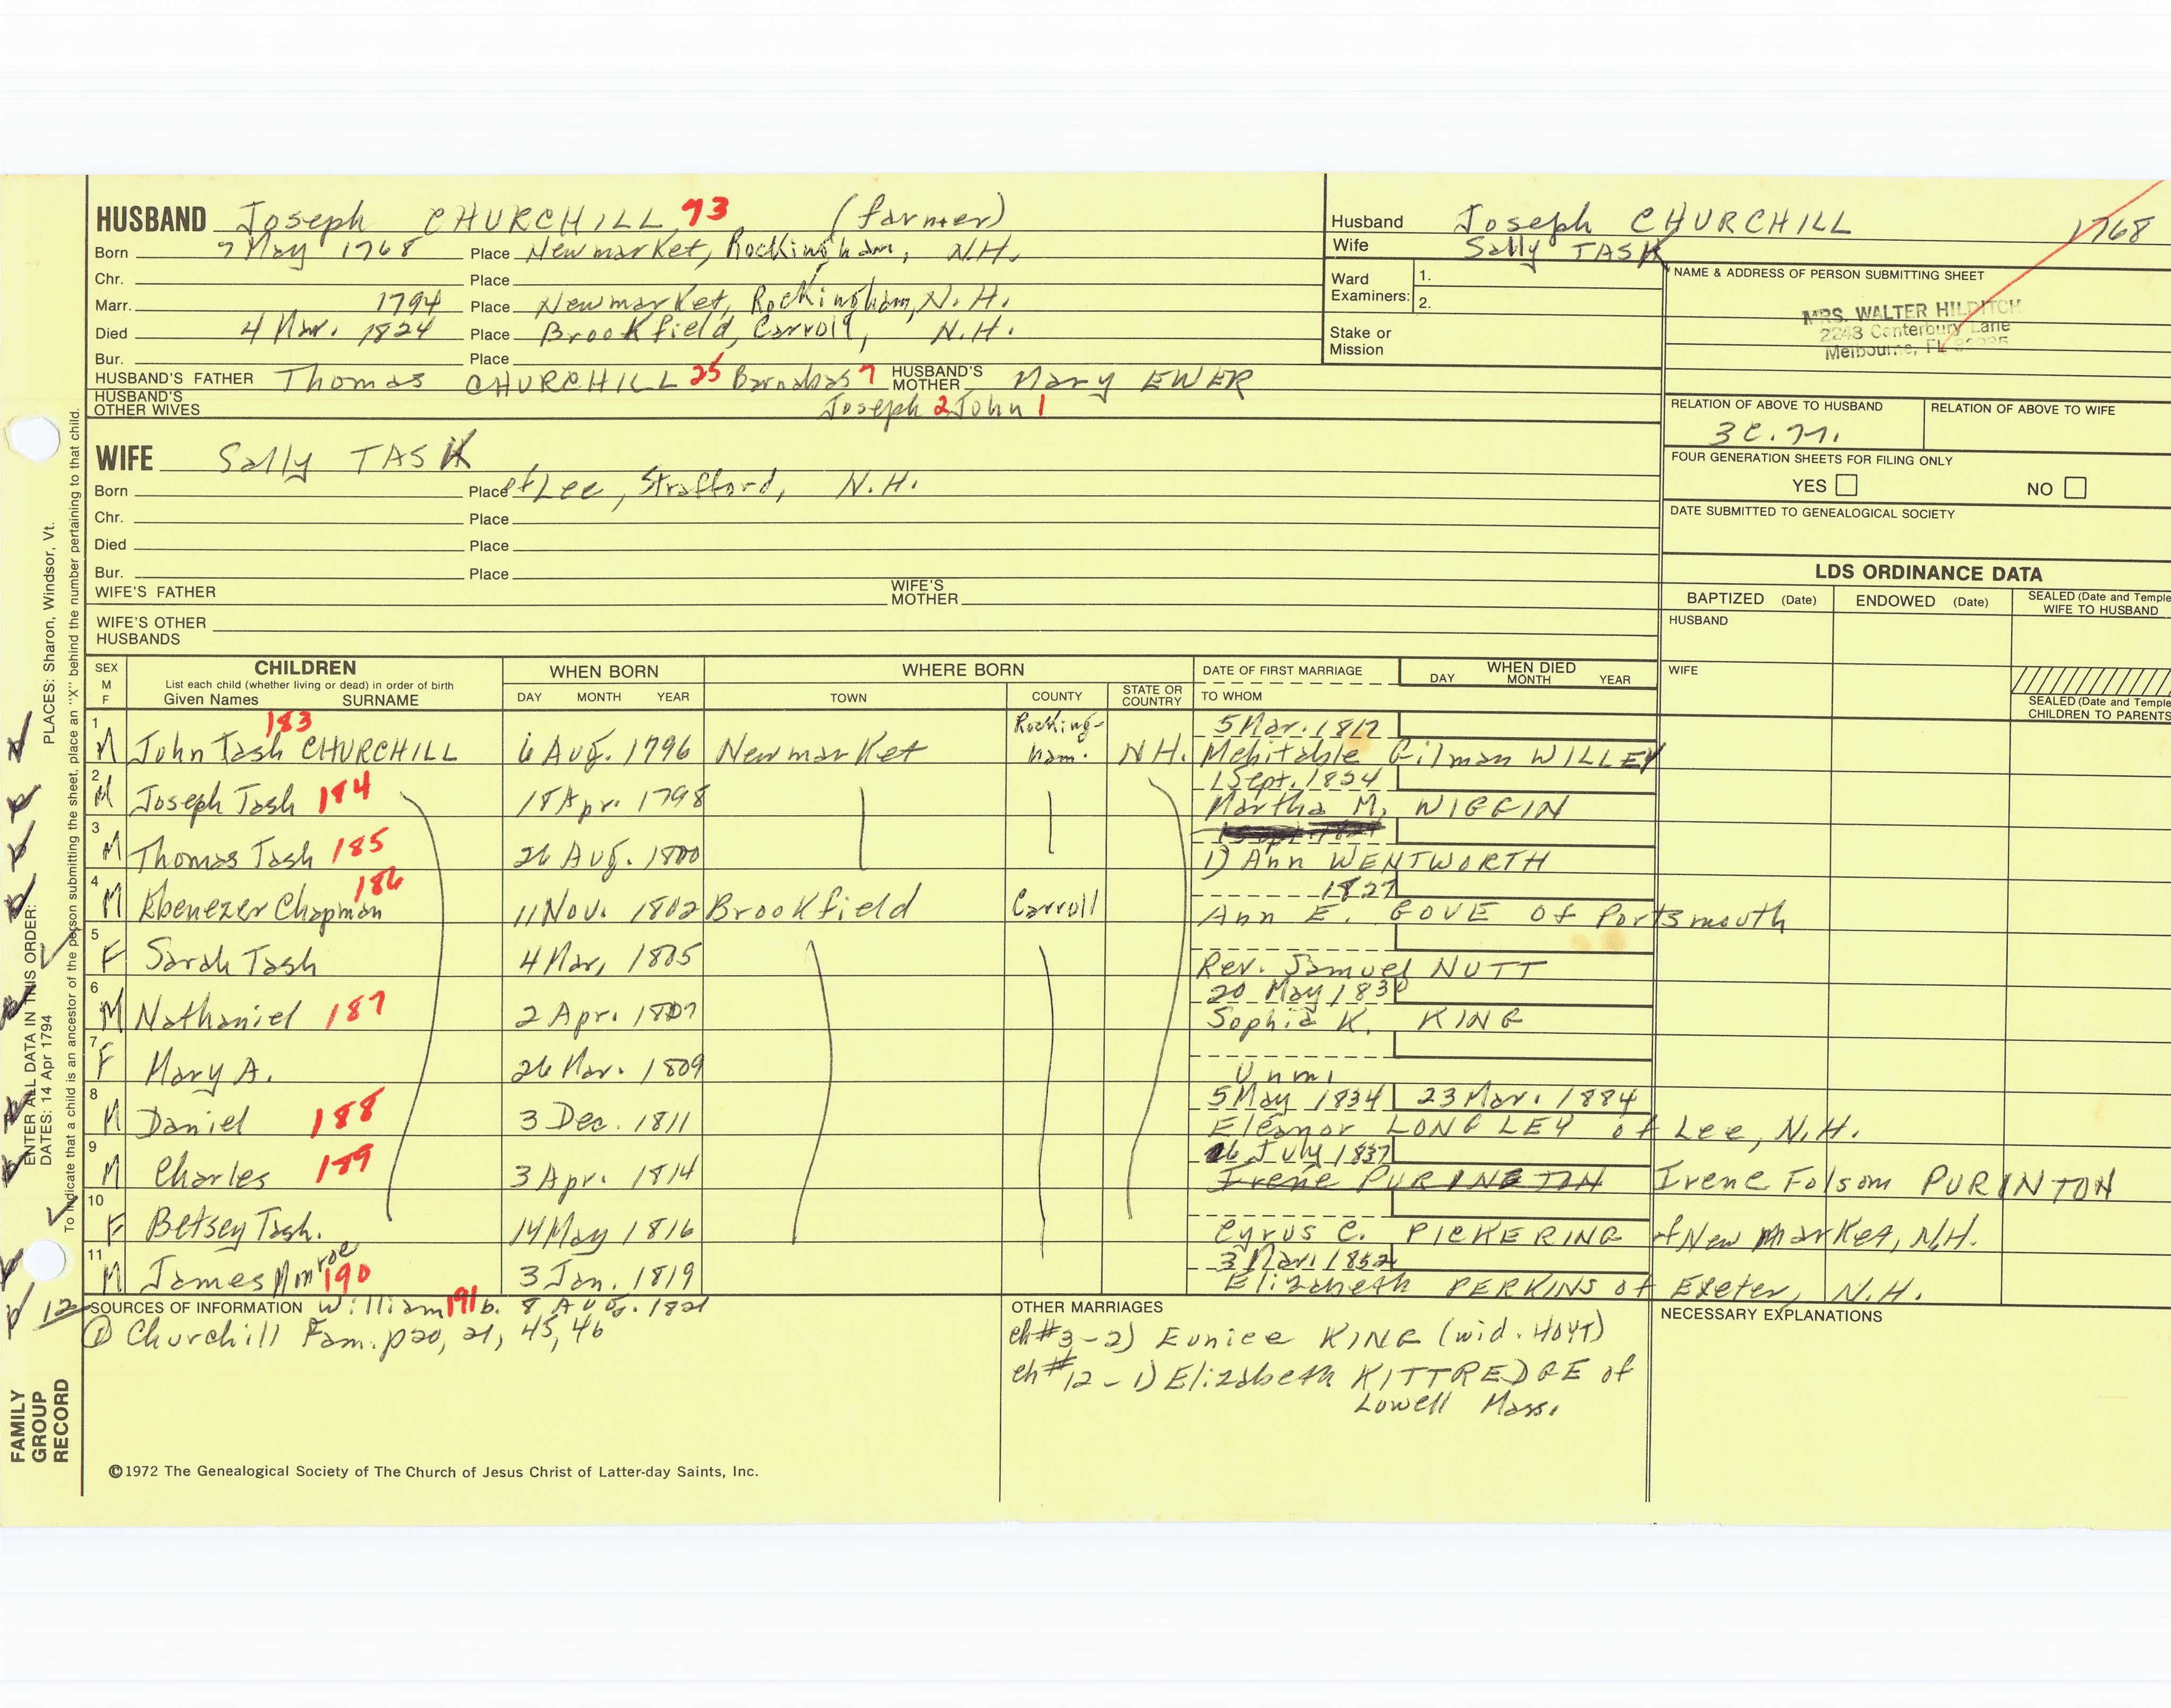 HUSBAND Joseph CHURCHILL 73 (farmer)
Born 7 May 1768 Place Newmarket, Rockingham, N.H.
Chr. Place
Marr. 1794 Place Newmarket, Rockingham, N.H.
Died 4 Mar. 1824 Place Brookfield, Carroll, N.H.
Bur. Place
HUSBAND'S FATHER Thomas CHURCHILL 25 Barnabas 7 HUSBAND'S MOTHER Mary EWER
HUSBAND'S OTHER WIVES Joseph 2 John 1
Husband Joseph CHURCHILL 1768
Wife Sally TASK
Ward Examiners: 1.
2.
Stake or Mission
NAME & ADDRESS OF PERSON SUBMITTING SHEET
MRS. WALTER HILDITCH
2248 Canterbury Lane
Melbourne, FL
RELATION OF ABOVE TO HUSBAND
3C.
RELATION OF ABOVE TO WIFE
FOUR GENERATION SHEETS FOR FILING ONLY
YES NO
DATE SUBMITTED TO GENEALOGICAL SOCIETY
WIFE Sally TASK
Born Place of Lee, Strafford, N.H.
Chr. Place
Died Place
Bur. Place
WIFE'S FATHER WIFE'S MOTHER
WIFE'S OTHER HUSBANDS
LDS ORDINANCE DATA
BAPTIZED (Date) ENDOWED (Date) SEALED (Date and Temple WIFE TO HUSBAND
HUSBAND
WIFE
SEALED (Date and Temple CHILDREN TO PARENTS
SEX M F
CHILDREN
List each child (whether living or dead) in order of birth
Given Names SURNAME
WHEN BORN
DAY MONTH YEAR
WHERE BORN
TOWN COUNTY STATE OR COUNTRY
DATE OF FIRST MARRIAGE
TO WHOM
WHEN DIED
DAY MONTH YEAR
1 M John Tash CHURCHILL 183 6 Aug. 1796 Newmarket Rockingham. NH. 5 Mar. 1817
Mehitable Gilman WILLEY
2 M Joseph Tash 184 18 Apr. 1798 1 Sept. 1824
Martha M. WIGGIN
3 M Thomas Tash 185 26 Aug. 1800
1) Ann WENTWORTH
4 M Ebenezer Chapman 186 11 Nov. 1802 Brookfield Carroll 1827
Ann E. GOVE of Portsmouth
5 F Sarah Tash 4 Mar. 1805
Rev. Samuel NUTT
6 M Nathaniel 187 2 Apr. 1807 20 May 1830
Sophia K. KING
7 F Mary A. 26 Mar. 1809
Unm.
8 M Daniel 188 3 Dec. 1811 5 May 1834 23 Mar. 1884
Eleanor LONGLEY of Lee, N.H.
9 M Charles 189 3 Apr. 1814 16 July 1837
Irene PURINGTON Irene Folsom PURINTON
10 F Betsey Tash. 14 May 1816
Cyrus C. PICKERING of New Market, N.H.
11 M James Monroe 190 3 Jan. 1819 3 Mar. 1852
Elizabeth PERKINS of Exeter, N.H.
12 SOURCES OF INFORMATION William 191 b. 8 Aug. 1821
① Churchill Fam. p20, 21, 45, 46
OTHER MARRIAGES
ch #3 - 2) Eunice KING (wid. HOYT)
ch #12 - 1) Elizabeth KITTREDGE of
Lowell Mass.
NECESSARY EXPLANATIONS
©1972 The Genealogical Society of The Church of Jesus Christ of Latter-day Saints, Inc.
FAMILY
GROUP
RECORD
ENTER ALL DATA IN THIS ORDER:
DATES: 14 Apr 1794
PLACES: Sharon, Windsor, Vt.
To indicate that a child is an ancestor of the person submitting the sheet, place an "X" behind the number pertaining to that child.